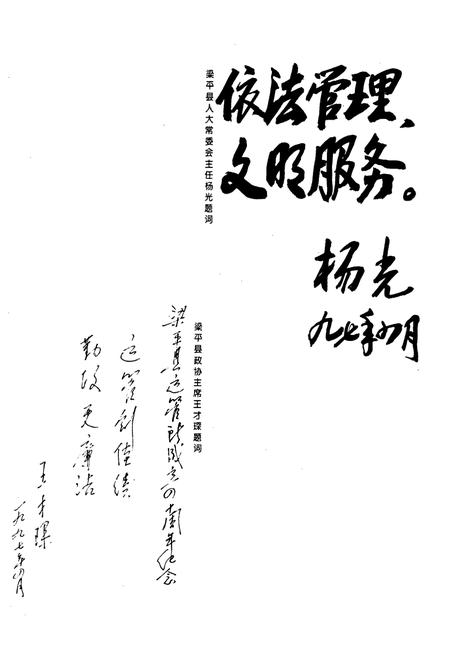 依法管理、
文明服务。
杨光
九七年四月
梁平县人大常委会主任杨光题词
梁平县政协主席王才琛题词
梁平县运管所成立四周年纪念
运管创佳绩
勤政更廉洁
王才琛
一九九七年四月